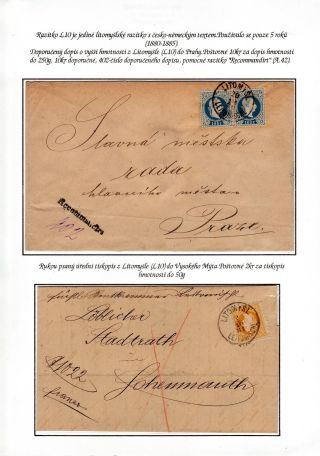 Razítko L10 je jediné litomyšlské razítko s česko-německým textem.Používalo se pouze 5 roků
(1880-1885)
Doporučený dopis o vyšší hmotnosti z Litomyšle (L10) do Prahy.Poštovné 10kr za dopis hmotnosti
do 250g, 10kr doporučené, 402-číslo doporučeného dopisu, pomocné razítko "Recommandirt" (A.42)
LITOMYŠL
Slavná městská
rada
hlavního města
Praze
Recommandirt
402
Rukou psaný úřední tiskopis z Litomyšle (L10) do Vysokého Mýta.Poštovné 2kr za tiskopis
hmotnosti do 50g
LITOMYŠL
LEITOMISCHL
Löblicher
Stadtrath
Hohenmauth